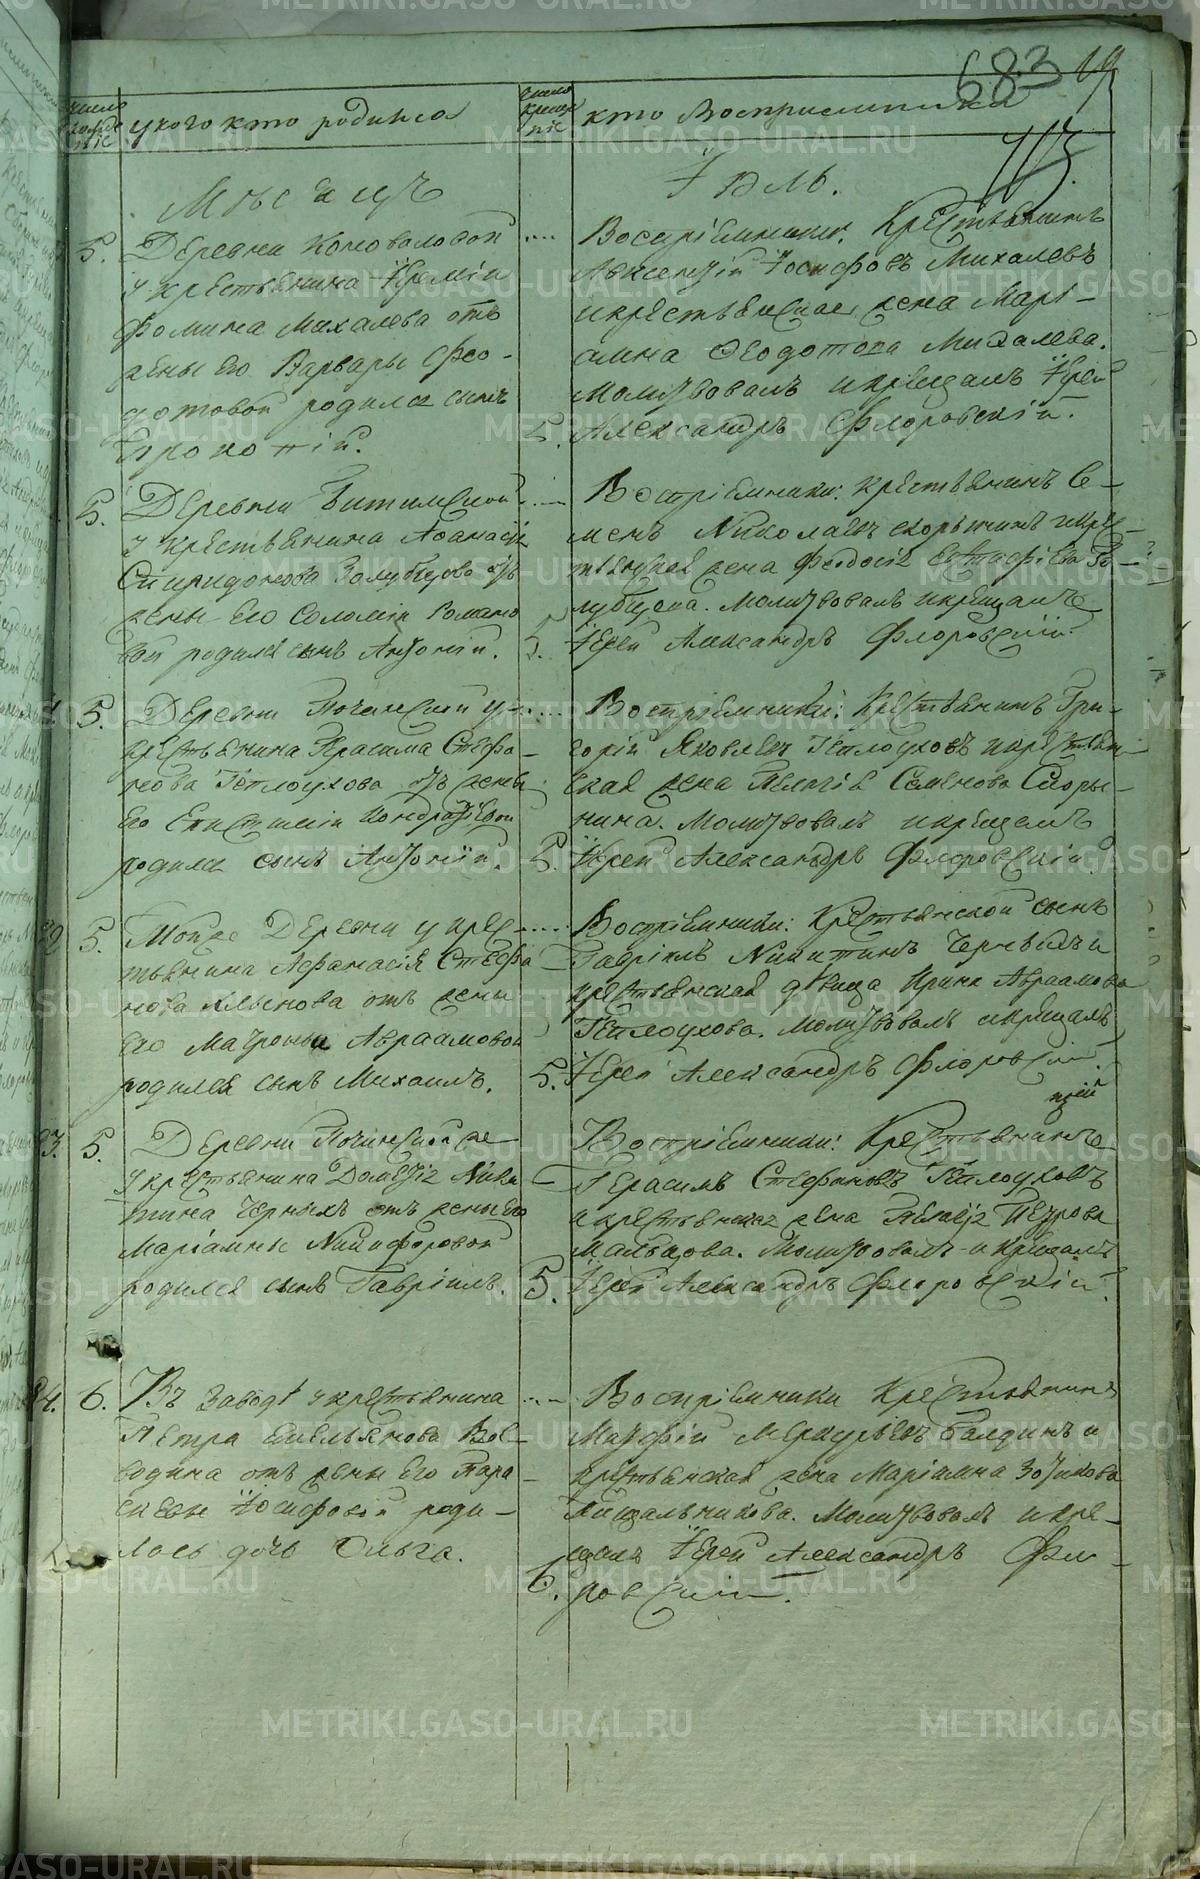 683 19
число рожде нiс
у кого кто родился
число креще нiс
кто Восприемники
113
Мѣсяцъ
Iюль.
5. Деревни Коноваловой
у крестьянина Iеремiи
Фомина Михалева отъ
жены Его Варвары Фео-
дотовой родился сынъ
Прокопiй.
Восприiемники: Крестьянинъ
Авксентiй Iосифовъ Михалевъ
и крестьянская жена Марi-
амна Феодотова Михалева.
Молитвовалъ и крещалъ Iерей
5. Александръ Флоровскiй.
5. Деревни Битимской
у крестьянина Афанасiя
Спиридонова Голубцова отъ
жены Его Соломiи Романо
вой родился сынъ Антонiй.
Вострiемники: крестьянинъ Се-
менъ Николаевъ скорынинъ и кре-
стьянская жена Феодосiя Евстафiева Го-
лубцова. Молитвовалъ и крещалъ
5. Iерей Александръ Флоровскiй.
5. Деревни Починской у
крестьянина Герасима Стефа-
нова Теплоухова отъ жены
Его Епистимiи Кондратiевой
родился сынъ Антонiй.
Вострiемники: Крестьянинъ Гри-
горiй Яковлевъ Теплоуховъ и крестьян-
ская жена Пелагiя Семенова Скоры-
нина. Молитвовалъ и крещалъ
5. Iерей Александръ Флоровскiй
5. Тойже Деревни у крес-
тьянина Афанасiя Стефа
нова отъ жены
Его Матроны Авраамовой
родился сынъ Михаилъ.
Вострiемники: Крестьянской сынъ
Гаврiилъ Никитинъ Черныхъ и
крестьянская дѣвица Ирина Авраамова
Теплоухова. Молитвовалъ и крещалъ
5. Iерей Александръ Флоровскiй.
5. Деревни Починской же
у крестьянина Дометiя Ники
тина Черныхъ отъ жены Его
Марiамны Никифоровой
родился сынъ Гаврiилъ.
Вострiемники: Крестьянинъ
Герасимъ Стефановъ Теплоуховъ
и крестьянская жена Пелагiя Петрова
Мальцова. Молитвовалъ и крещалъ
5. Iерей Александръ Флоровскiй
84. 6. Въ заводѣ у крестьянина
Петра Емельянова Вое-
водина отъ жены Его Пара-
скевы Iосифовой роди-
лась дочь Ольга.
Вострiемники Крестьянинъ
Матфiй Меркурьевъ Балдинъ и
крестьянская жена Марiамна Зотикова
Пищальникова. Молитвовалъ и кре-
щалъ Iерей Александръ Фло-
6. ровскiй.
METRIKI.GASO-URAL.RU